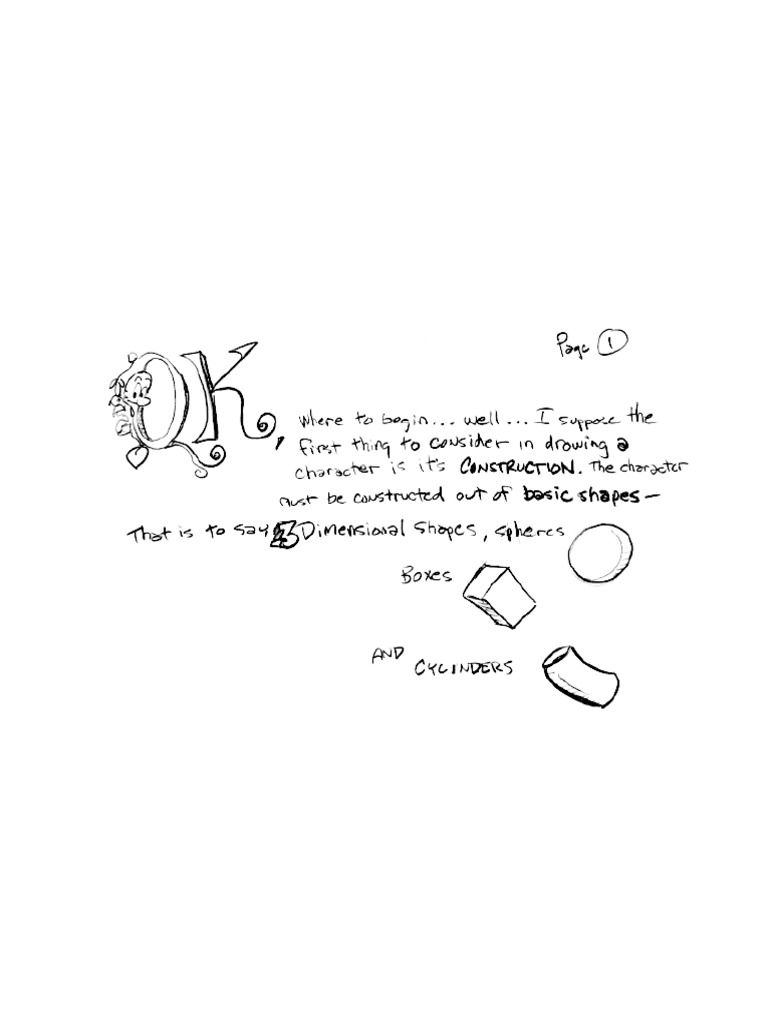 Page 1
OK,
Where to begin... well... I suppose the
first thing to consider in drawing a
character is it's CONSTRUCTION. The character
must be constructed out of basic shapes—
That is to say 3 Dimensional shapes, spheres
Boxes
AND
CYLINDERS